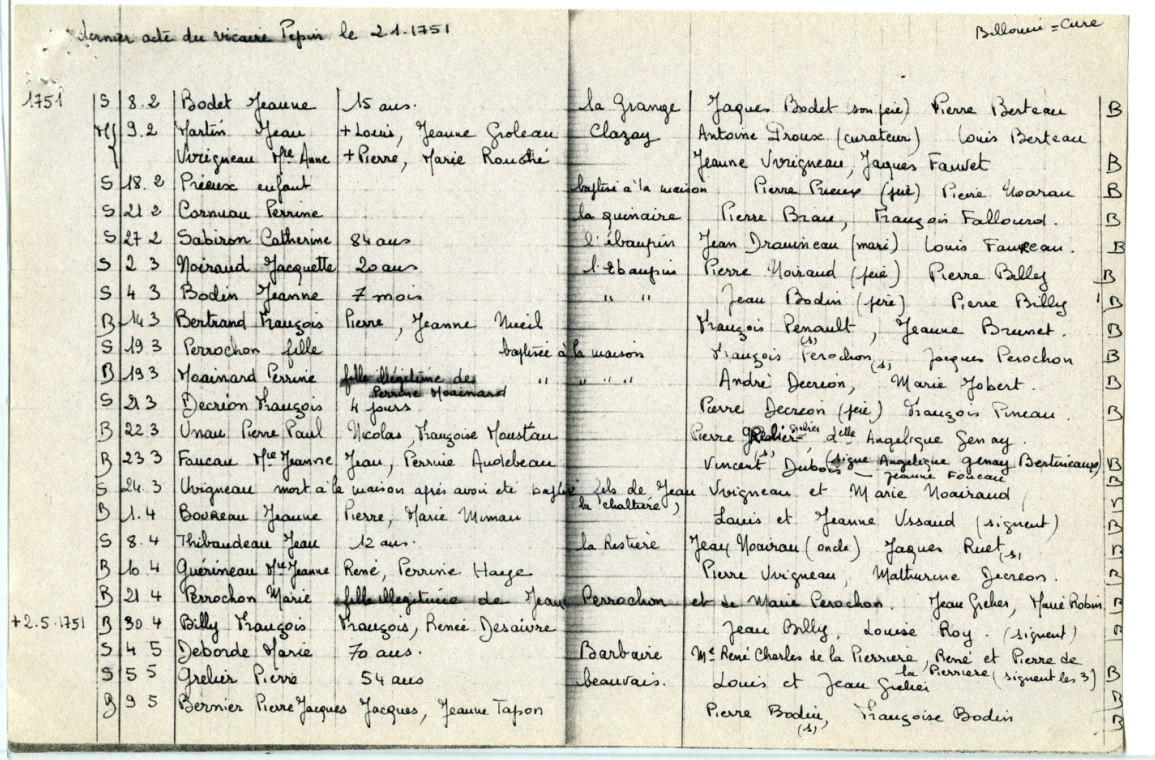 dernier acte du vicaire Pepin le 2.1.1751 Billouin = Curé
1751 S 8.2 Bodet Jeanne 15 ans. la Grange Jaques Bodet (son père) Pierre Berteau B
M 9.2 Martin Jean + Louis, Jeanne Groleau Clazay Antoine Droux (curateur) Louis Berteau
Vvrigneau Mie Anne + Pierre, Marie Jeanne Vvrigneau, Jaques Fauvet B
S 18.2 Prieux enfant baptisé à la maison Pierre Prieux (père) Pierre B
S 21 2 Cornuau Perrine la quinaire Pierre Brau, François Fallourd. B
S 27 2 Sabiron Catherine 84 ans l'ébaupin Jean Drauneau (mari) Louis B
S 2 3 Noiraud Jacquette 20 ans l'Ebaupin Pierre Noiraud (père) Pierre Billy B
S 4 3 Bodin Jeanne 7 mois " " Jean Bodin (père) Pierre Billy B
B 14 3 Bertrand François Pierre, Jeanne Nueil François Penault, Jeanne Brunet. B
S 19 3 Perrochon fille baptisée à la maison François Perochon (s), Jacques Perochon (s) B
B 19 3 Moainard Perrine fille illégitime de Perrine Moainard " " " " André Decreon, Marie Jobert. B
S 21 3 Decréon François 4 jours Pierre Decreon (père) François Pineau. B
B 22 3 Unau Pierre Paul Nicolas, Françoise Moustau Pierre delle Angelique Genay.
B 23 3 Faucau Mie Jeanne Jean, Perrine Audebeau Vincent Dubois (s) (signe Angelique genay Bertineaux) Jeanne Foucau B
S 24.3 Uvrigneau mort à la maison après avoir été baptisé fils de Jean Vvrigneau et Marie Noairaud B
B 1.4 Boureau Jeanne Pierre, Marie Mimau la chalture, Louis et Jeanne Ussaud (signent) B
S 8.4 Thibaudeau Jean 12 ans. la Restière Jean Noairau (oncle) Jaques Ruet (s) B
B 10.4 Guérineau Mie Jeanne René, Perrine Haye Pierre Vrigneau, Mathurine Decreon. B
B 21 4 Perrochon Marie fille illegitime de Jean Perrochon et de Marie Perochon. Jean Grelier, Marie Robin B
+2.5.1751 B 30.4 Billy François François, Renée Desaivre Jean Billy, Louise Roy. (signent) B
S 4 5 Deborde Marie 70 ans. Barbaire Me René Charles de la Pierriere, René et Pierre de la Pierriere (signent les 3)
S 5 5 Grelier Pierre 54 ans beauvais. Louis et Jean Grelier B
B 9 5 Bernier Pierre Jacques Jacques, Jeanne Tapon Pierre Bodin (s), Françoise Bodin B